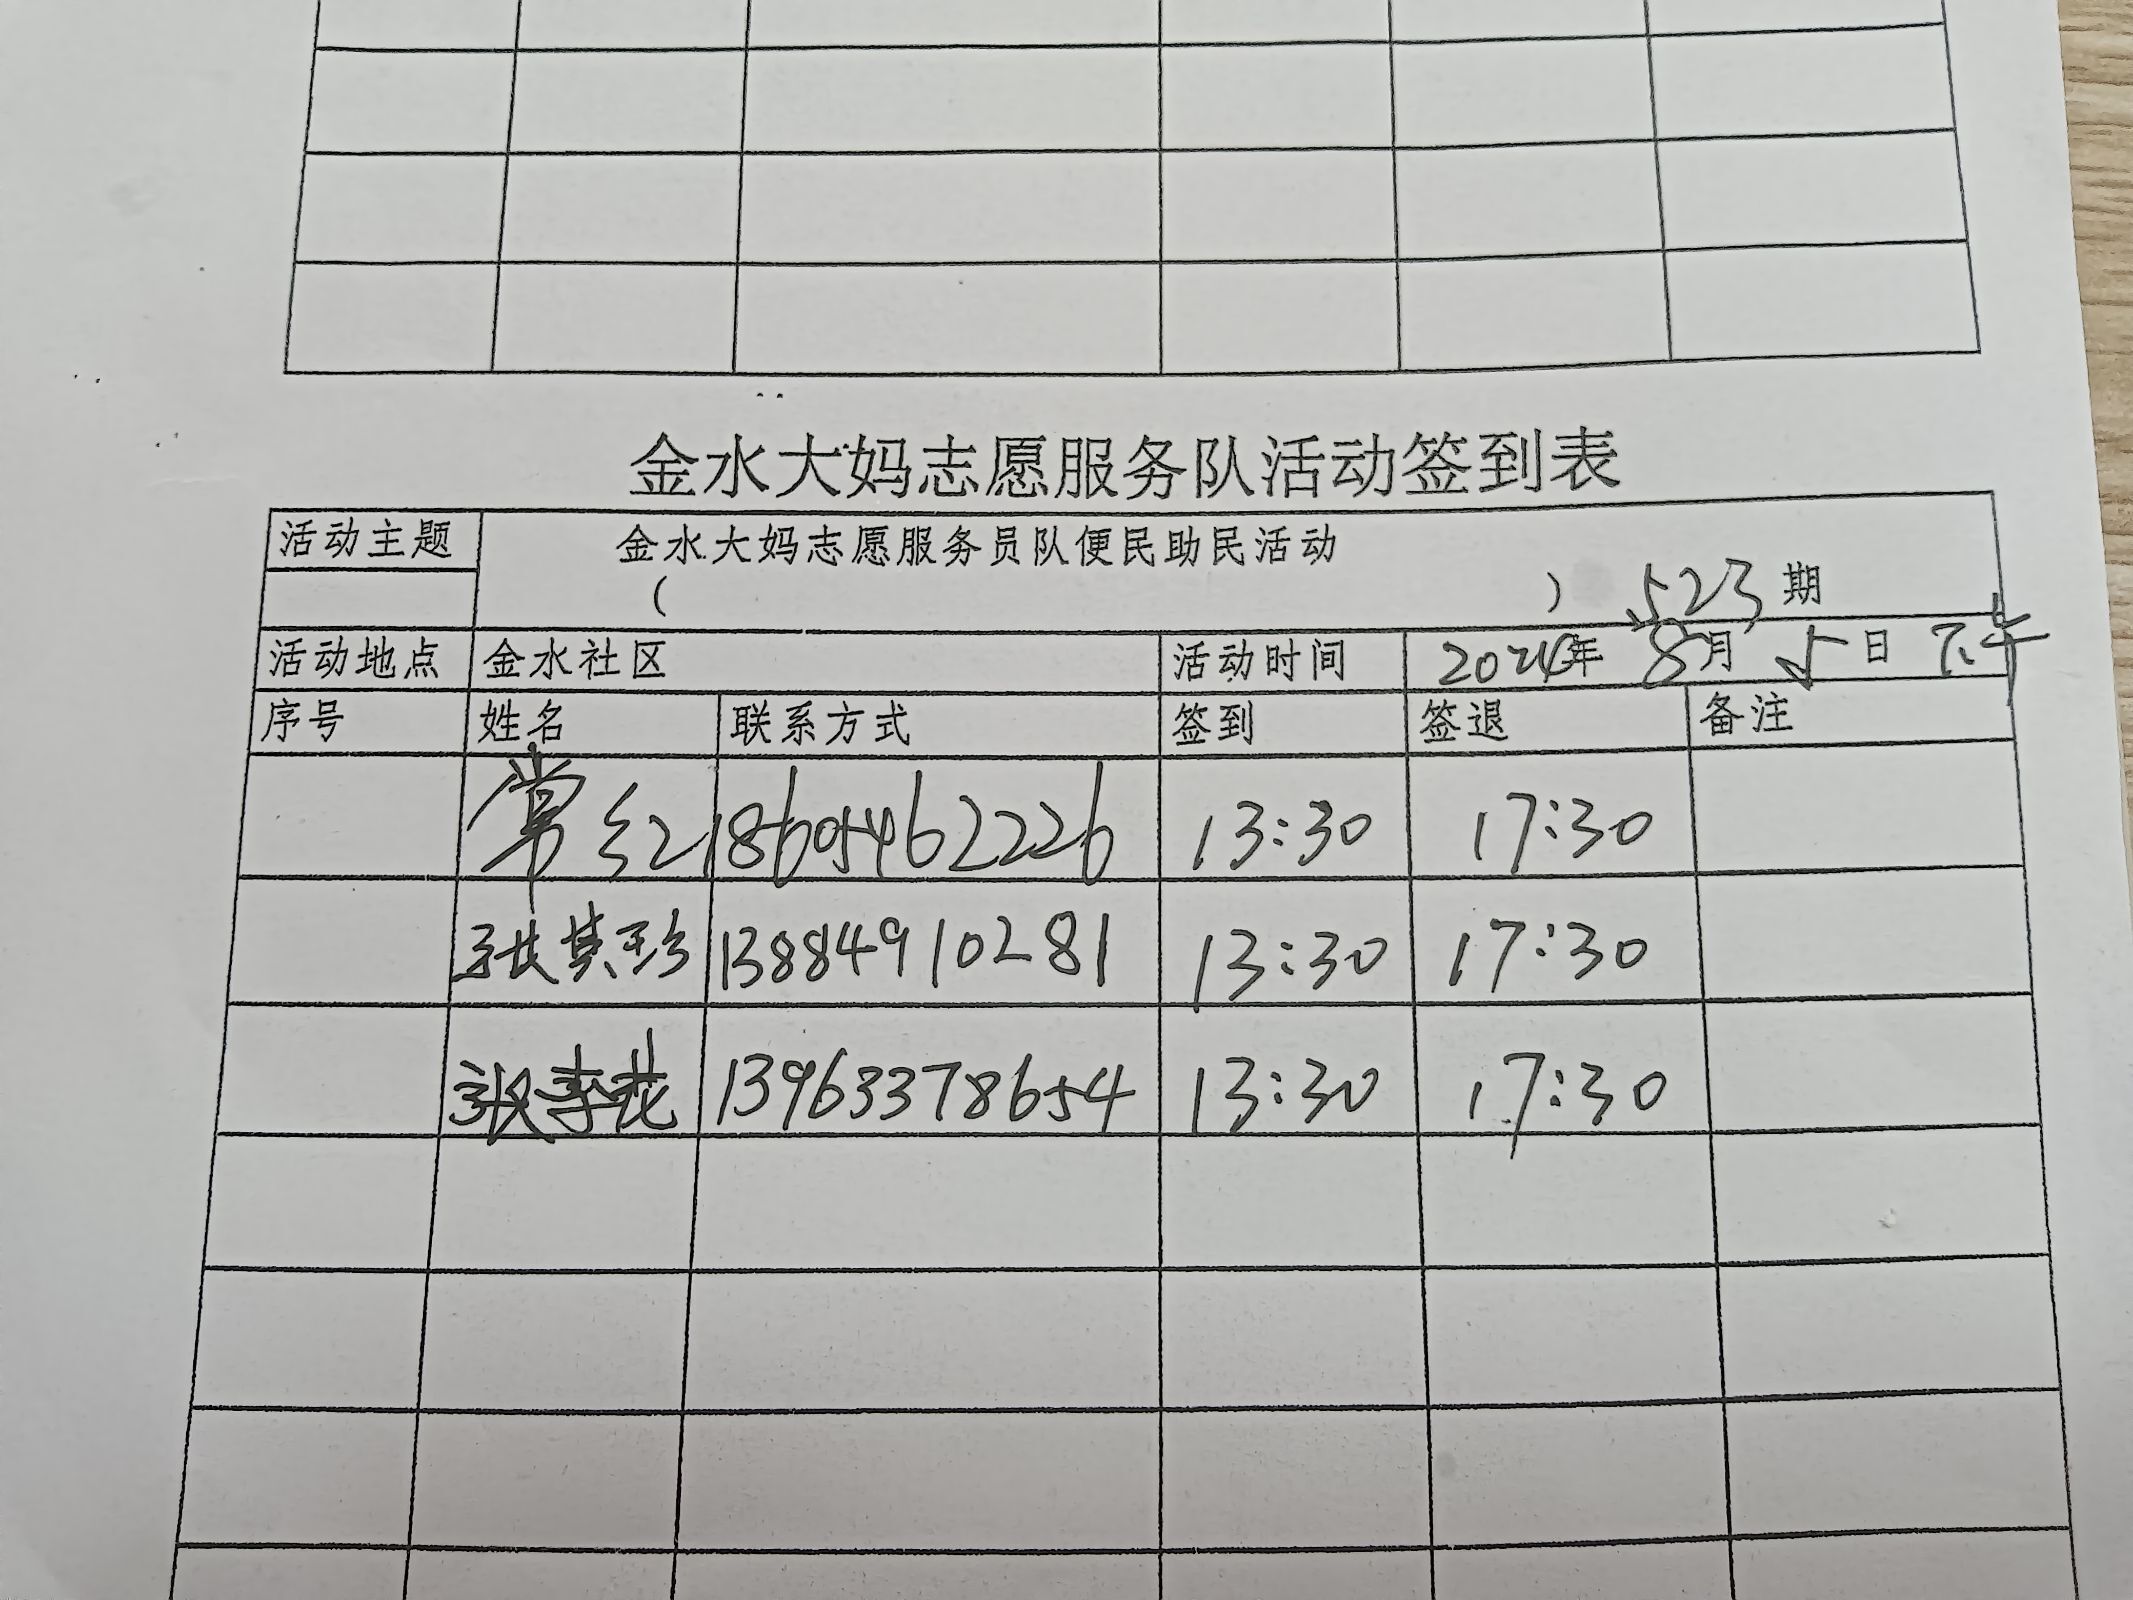 金水大妈志愿服务队活动签到表
活动主题 金水大妈志愿服务员队便民助民活动
( ) 523期
活动地点 金水社区 活动时间 2024年8月5日下午
序号 姓名 联系方式 签到 签退 备注
常红 18605462226 13:30 17:30
张其珍 13884910281 13:30 17:30
张李花 13963378654 13:30 17:30